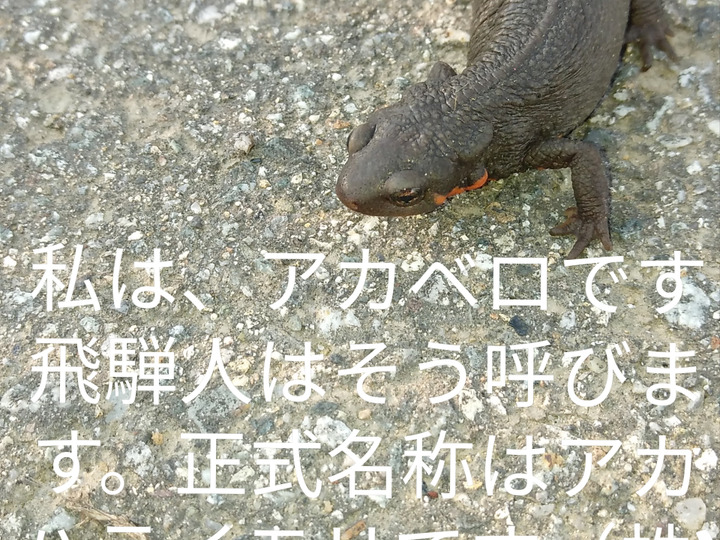 私は、アカベロです
飛騨人はそう呼びま
す。正式名称はアカ